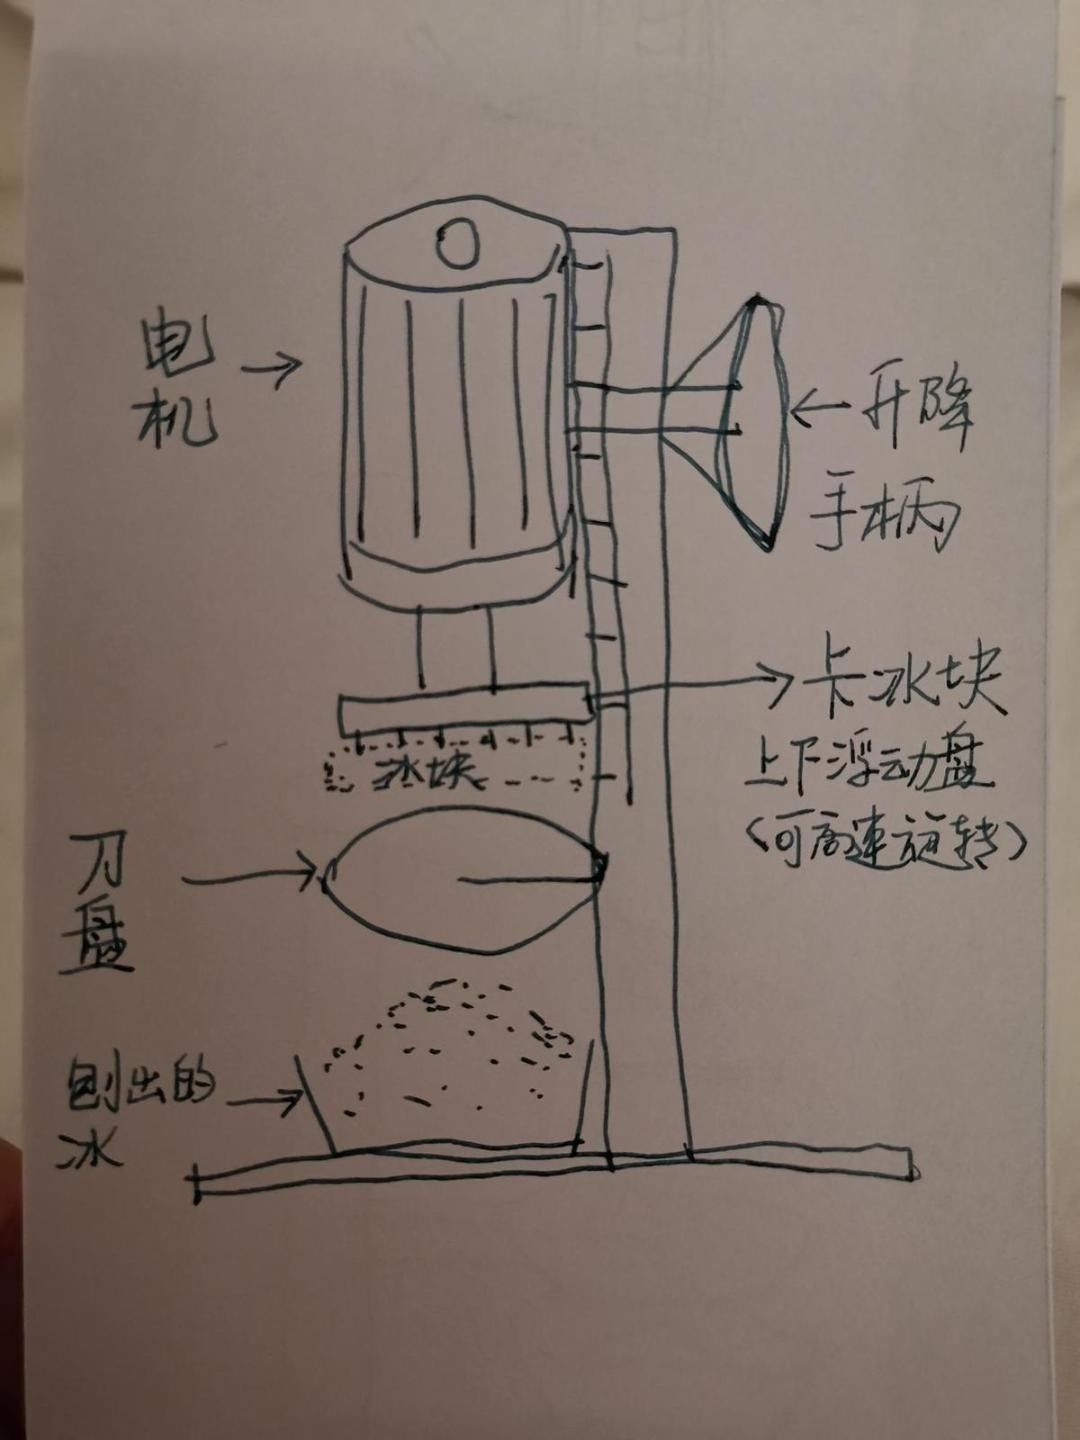 电
机
升降
手柄
卡冰块
上下浮动盘
(可高速旋转)
冰块
刀
盘
刨出的
冰